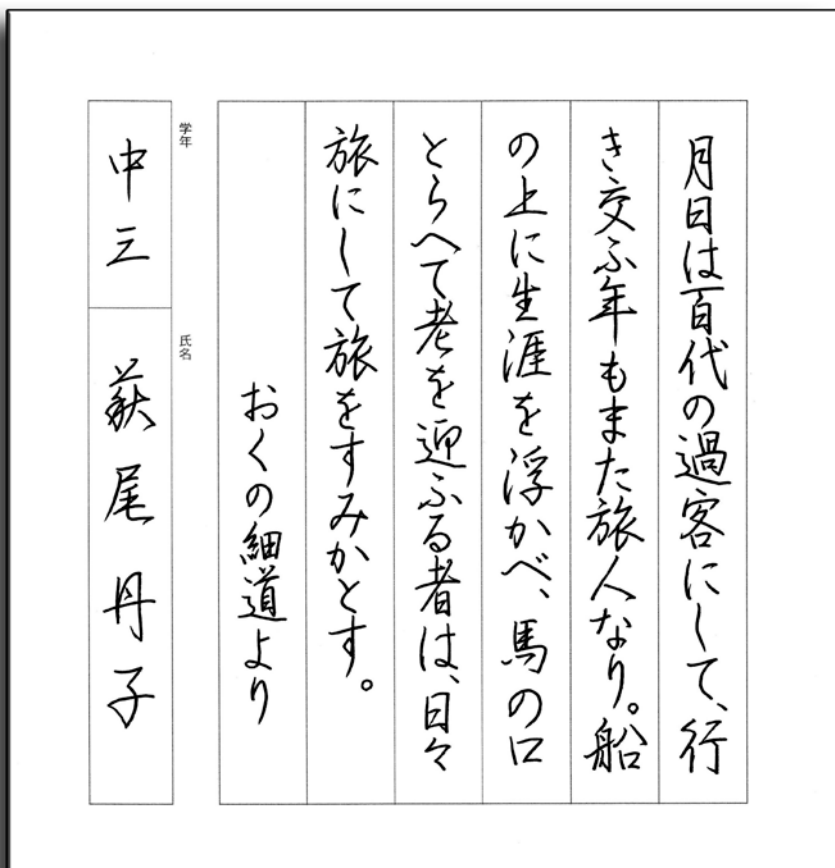 月日は百代の過客にして、行
き交ふ年もまた旅人なり。船
の上に生涯を浮かべ、馬の口
とらへて老を迎ふる者は、日々
旅にして旅をすみかとす。
おくの細道より
学年
中三
氏名
萩尾丹子